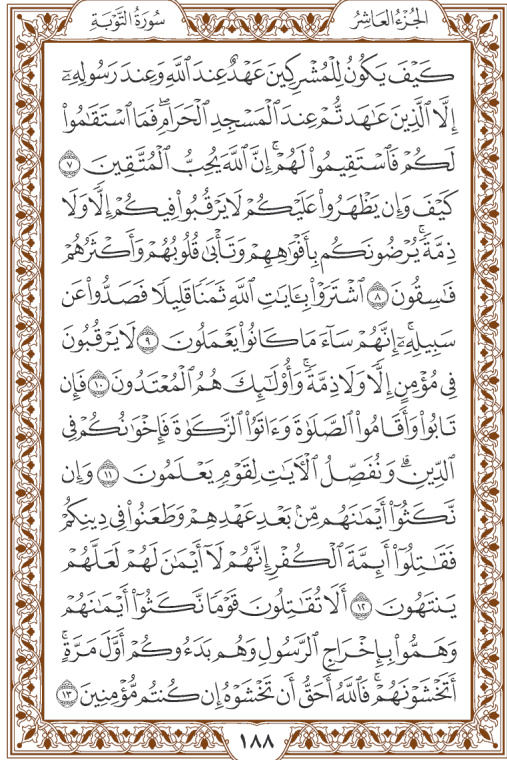 الجُزْءُ العَاشِرُ
سُورَةُ التَّوْبَةِ
كَيْفَ يَكُونُ لِلْمُشْرِكِينَ عَهْدٌ عِندَ ٱللَّهِ وَعِندَ رَسُولِهِۦٓ
إِلَّا ٱلَّذِينَ عَٰهَدتُّمْ عِندَ ٱلْمَسْجِدِ ٱلْحَرَامِۖ فَمَا ٱسْتَقَٰمُوا۟
لَكُمْ فَٱسْتَقِيمُوا۟ لَهُمْۚ إِنَّ ٱللَّهَ يُحِبُّ ٱلْمُتَّقِينَ ٧
كَيْفَ وَإِن يَظْهَرُوا۟ عَلَيْكُمْ لَا يَرْقُبُوا۟ فِيكُمْ إِلًّا وَلَا
ذِمَّةًۚ يُرْضُونَكُم بِأَفْوَٰهِهِمْ وَتَأْبَىٰ قُلُوبُهُمْ وَأَكْثَرُهُمْ
فَٰسِقُونَ ٨ ٱشْتَرَوْا۟ بِـَٔايَٰتِ ٱللَّهِ ثَمَنًا قَلِيلًا فَصَدُّوا۟ عَن
سَبِيلِهِۦٓۚ إِنَّهُمْ سَآءَ مَا كَانُوا۟ يَعْمَلُونَ ٩ لَا يَرْقُبُونَ
فِى مُؤْمِنٍ إِلًّا وَلَا ذِمَّةًۚ وَأُو۟لَٰٓئِكَ هُمُ ٱلْمُعْتَدُونَ ١٠ فَإِن
تَابُوا۟ وَأَقَامُوا۟ ٱلصَّلَوٰةَ وَءَاتَوُا۟ ٱلزَّكَوٰةَ فَإِخْوَٰنُكُمْ فِى
ٱلدِّينِۗ وَنُفَصِّلُ ٱلْـَٔايَٰتِ لِقَوْمٍ يَعْلَمُونَ ١١ وَإِن
نَّكَثُوٓا۟ أَيْمَٰنَهُم مِّنۢ بَعْدِ عَهْدِهِمْ وَطَعَنُوا۟ فِى دِينِكُمْ
فَقَٰتِلُوٓا۟ أَئِمَّةَ ٱلْكُفْرِۙ إِنَّهُمْ لَآ أَيْمَٰنَ لَهُمْ لَعَلَّهُمْ
يَنتَهُونَ ١٢ أَلَا تُقَٰتِلُونَ قَوْمًا نَّكَثُوٓا۟ أَيْمَٰنَهُمْ
وَهَمُّوا۟ بِإِخْرَاجِ ٱلرَّسُولِ وَهُم بَدَءُوكُمْ أَوَّلَ مَرَّةٍۚ
أَتَخْشَوْنَهُمْۚ فَٱللَّهُ أَحَقُّ أَن تَخْشَوْهُ إِن كُنتُم مُّؤْمِنِينَ ١٣
١٨٨